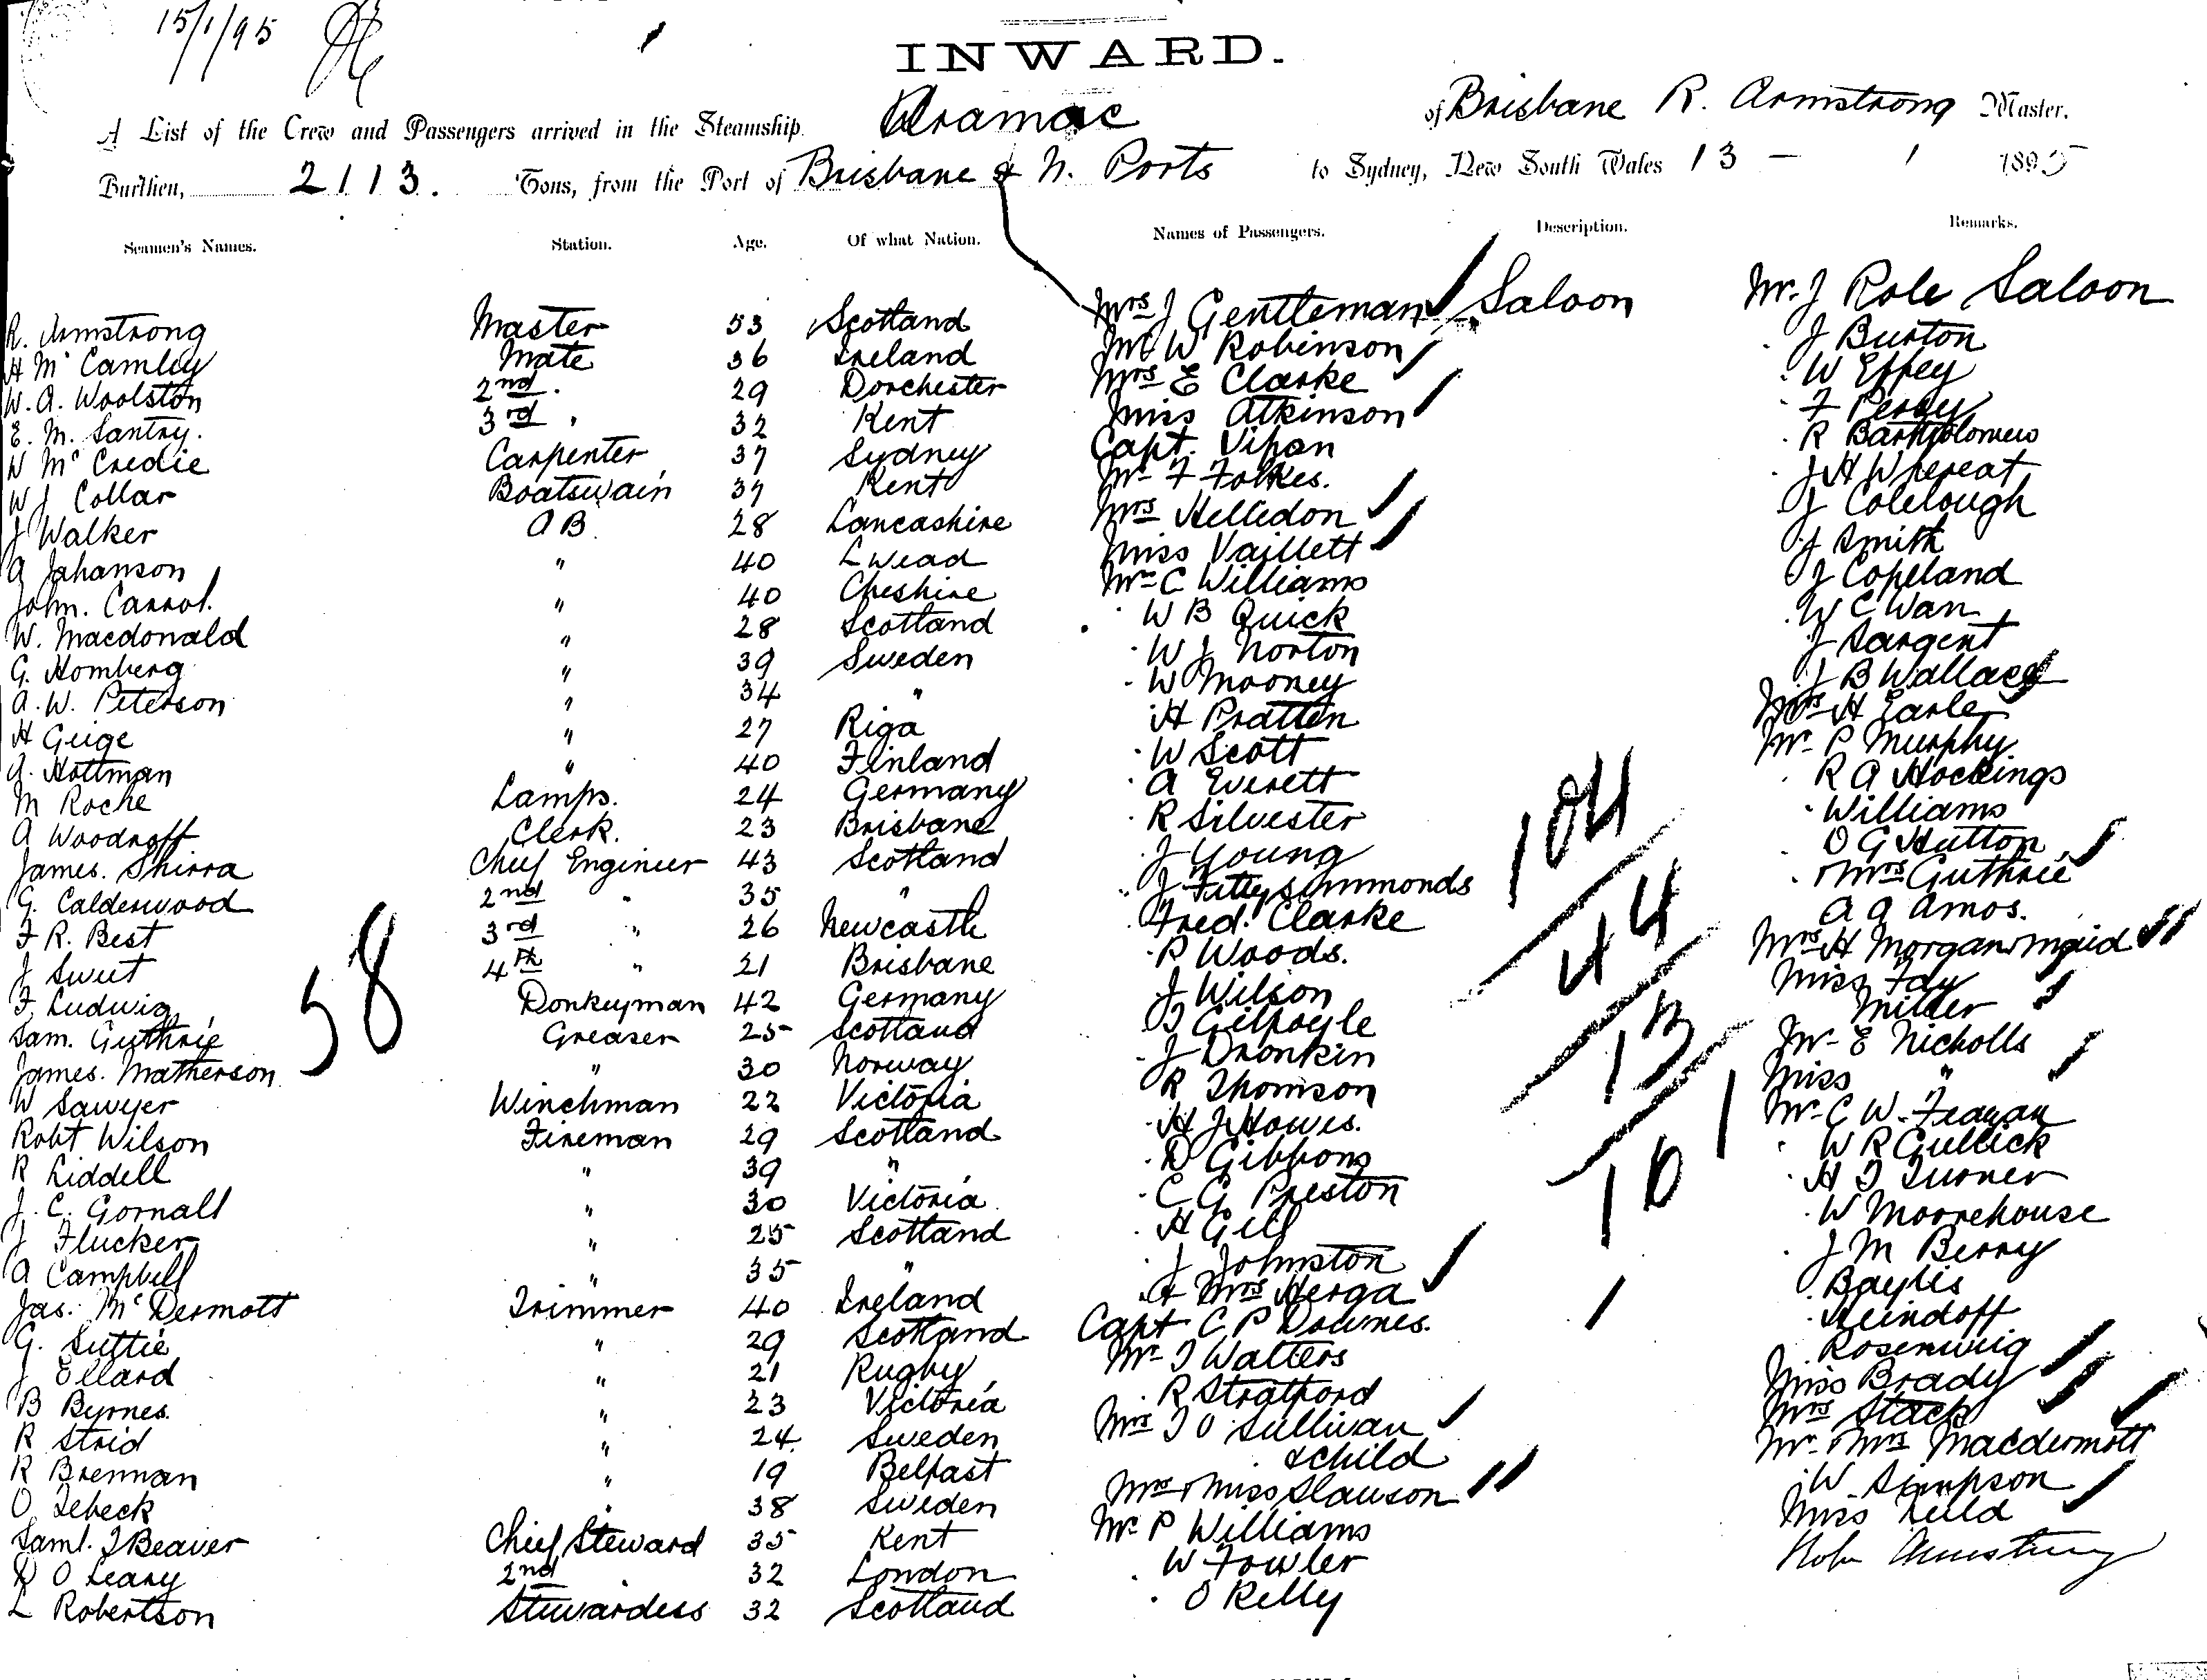 15/1/95
INWARD.
A List of the Crew and Passengers arrived in the Steamship Aramac of Brisbane R. Armstrong Master.
Burthen, 2113. Tons, from the Port of Brisbane & N. Ports to Sydney, New South Wales 13 - 1 1895
Seamen's Names. Station. Age. Of what Nation. Names of Passengers. Description. Remarks.
R. Armstrong Master 53 Scotland Mrs J Gentleman Saloon Mr. J Role Saloon
H McCamley Mate 36 Ireland Mr W Robinson J Burton
W. A. Woolston 2nd . 29 Dorchester Mrs E Clarke W Effey
E. M. Santry. 3rd " 32 Kent Miss Atkinson F Percy
W McCredie Carpenter 37 Sydney Capt. Vipan R Bartholomew
W J Collar Boatswain 37 Kent Mr F Folkes. J H Whereat
J Walker A B. 28 Lancashire Mrs Helledon J Colclough
A Johanson " 40 Miss Vaillett J Smith
John. Carrol. " 40 Cheshire Mr C Williams J Copeland
W. Macdonald " 28 Scotland . W B Quick W C Wan
G. Homberg " 39 Sweden . W J Norton J Sargent
A. W. Peterson " 34 " . W Mooney J B Wallace
H Geige " 27 Riga . H Pratten Mrs H Earle
A. Hottman " 40 Finland . W Scott Mr P Murphy
M Roche Lamps. 24 Germany . A Everett . R A Hockings
A Woodroff Clerk. 23 Brisbane . R Silvester . Williams
James. Shirra Chief Engineer 43 Scotland . J Young . O G Hutton
G. Calderwood 2nd " 35 " . J Fittysimmonds . Mrs Guthrie
F R. Best 3rd " 26 Newcastle . Fred. Clarke A A Amos.
J Sweet 4th " 21 Brisbane . R Woods. Mrs H Morgan & maid
F. Ludwig Donkeyman 42 Germany J Wilson Miss
Sam. Guthrie Greaser 25 Scotland T Gilfoyle Miller
James. Matherson " 30 Norway . J Dronkin Mr E Nicholls
W Sawyer Winchman 22 Victoria R Thomson Miss "
Robt Wilson Fireman 29 Scotland . H J Howes. Mr C W.
R Liddell " 39 " . D Gibbons . W R Gullick
J. C. Gornall " 30 Victoria . C G Preston . H T Turner
J Flucker " 25 Scotland . H Gill . W Moorehouse
A Campbell " 35 " . J Johnston . J M Berry
Jas. McDermott Trimmer 40 Ireland . & Mrs Herga . Baylis
G. Suttie " 29 Scotland Capt C P Downes. . Heindoff
J Ellard " 21 Rugby Mr T Watters . Rosenwig
B Byrnes. " 23 Victoria . R Stratford Miss Brady
R Strid " 24 Sweden Mrs T O Sullivan Mrs Stack
R Brennan " 19 Belfast . & child Mr & Mrs Macdermott
O Lebeck " 38 Sweden Mrs & Miss Slawson . W Simpson
Saml. J Beaver Chief Steward 35 Kent Mr P Williams Miss
D O Leary 2nd " 32 London . W Fowler Robt Armstrong
L Robertson Stewardess 32 Scotland . O Kelly
58
104
44
13
161